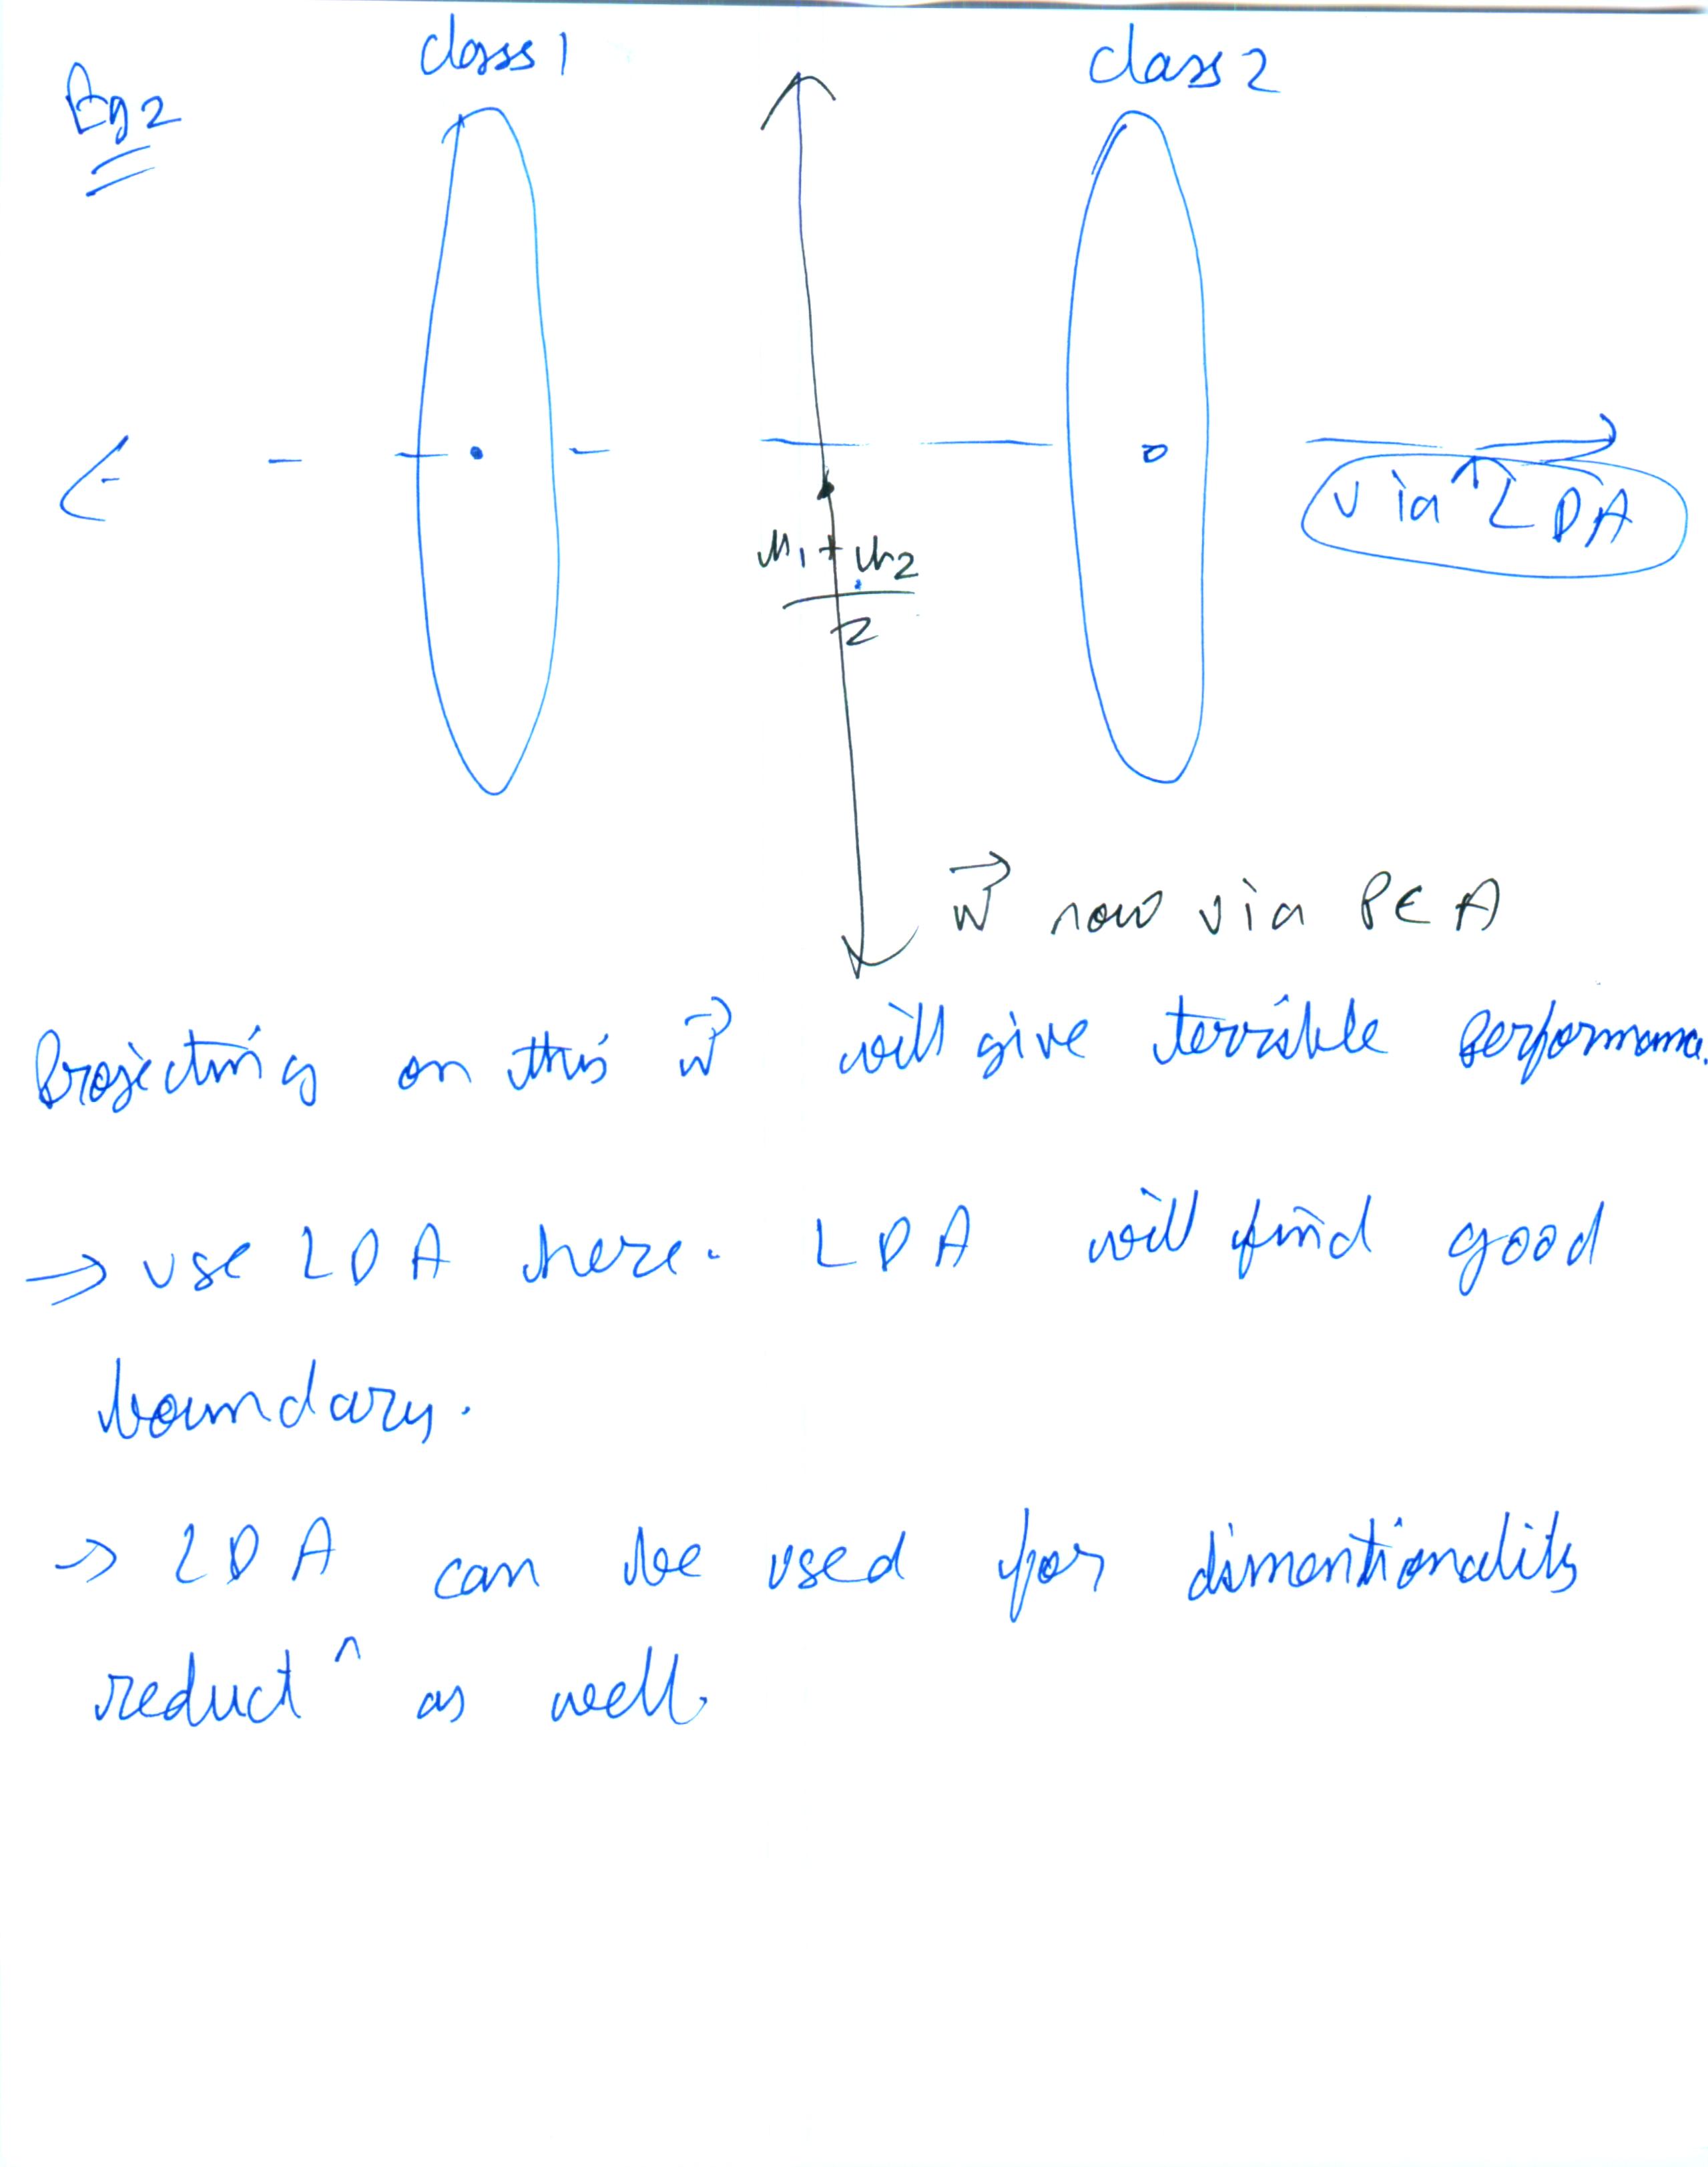 Eg 2
class 1
class 2
via LDA
μ1 + μ2
2
w⃗ now via PCA
Projecting on this w⃗ will give terrible performanc.
→ use LDA here. LDA will find good
boundary.
→ LDA can be used for dimentionality
reduct^n as well.